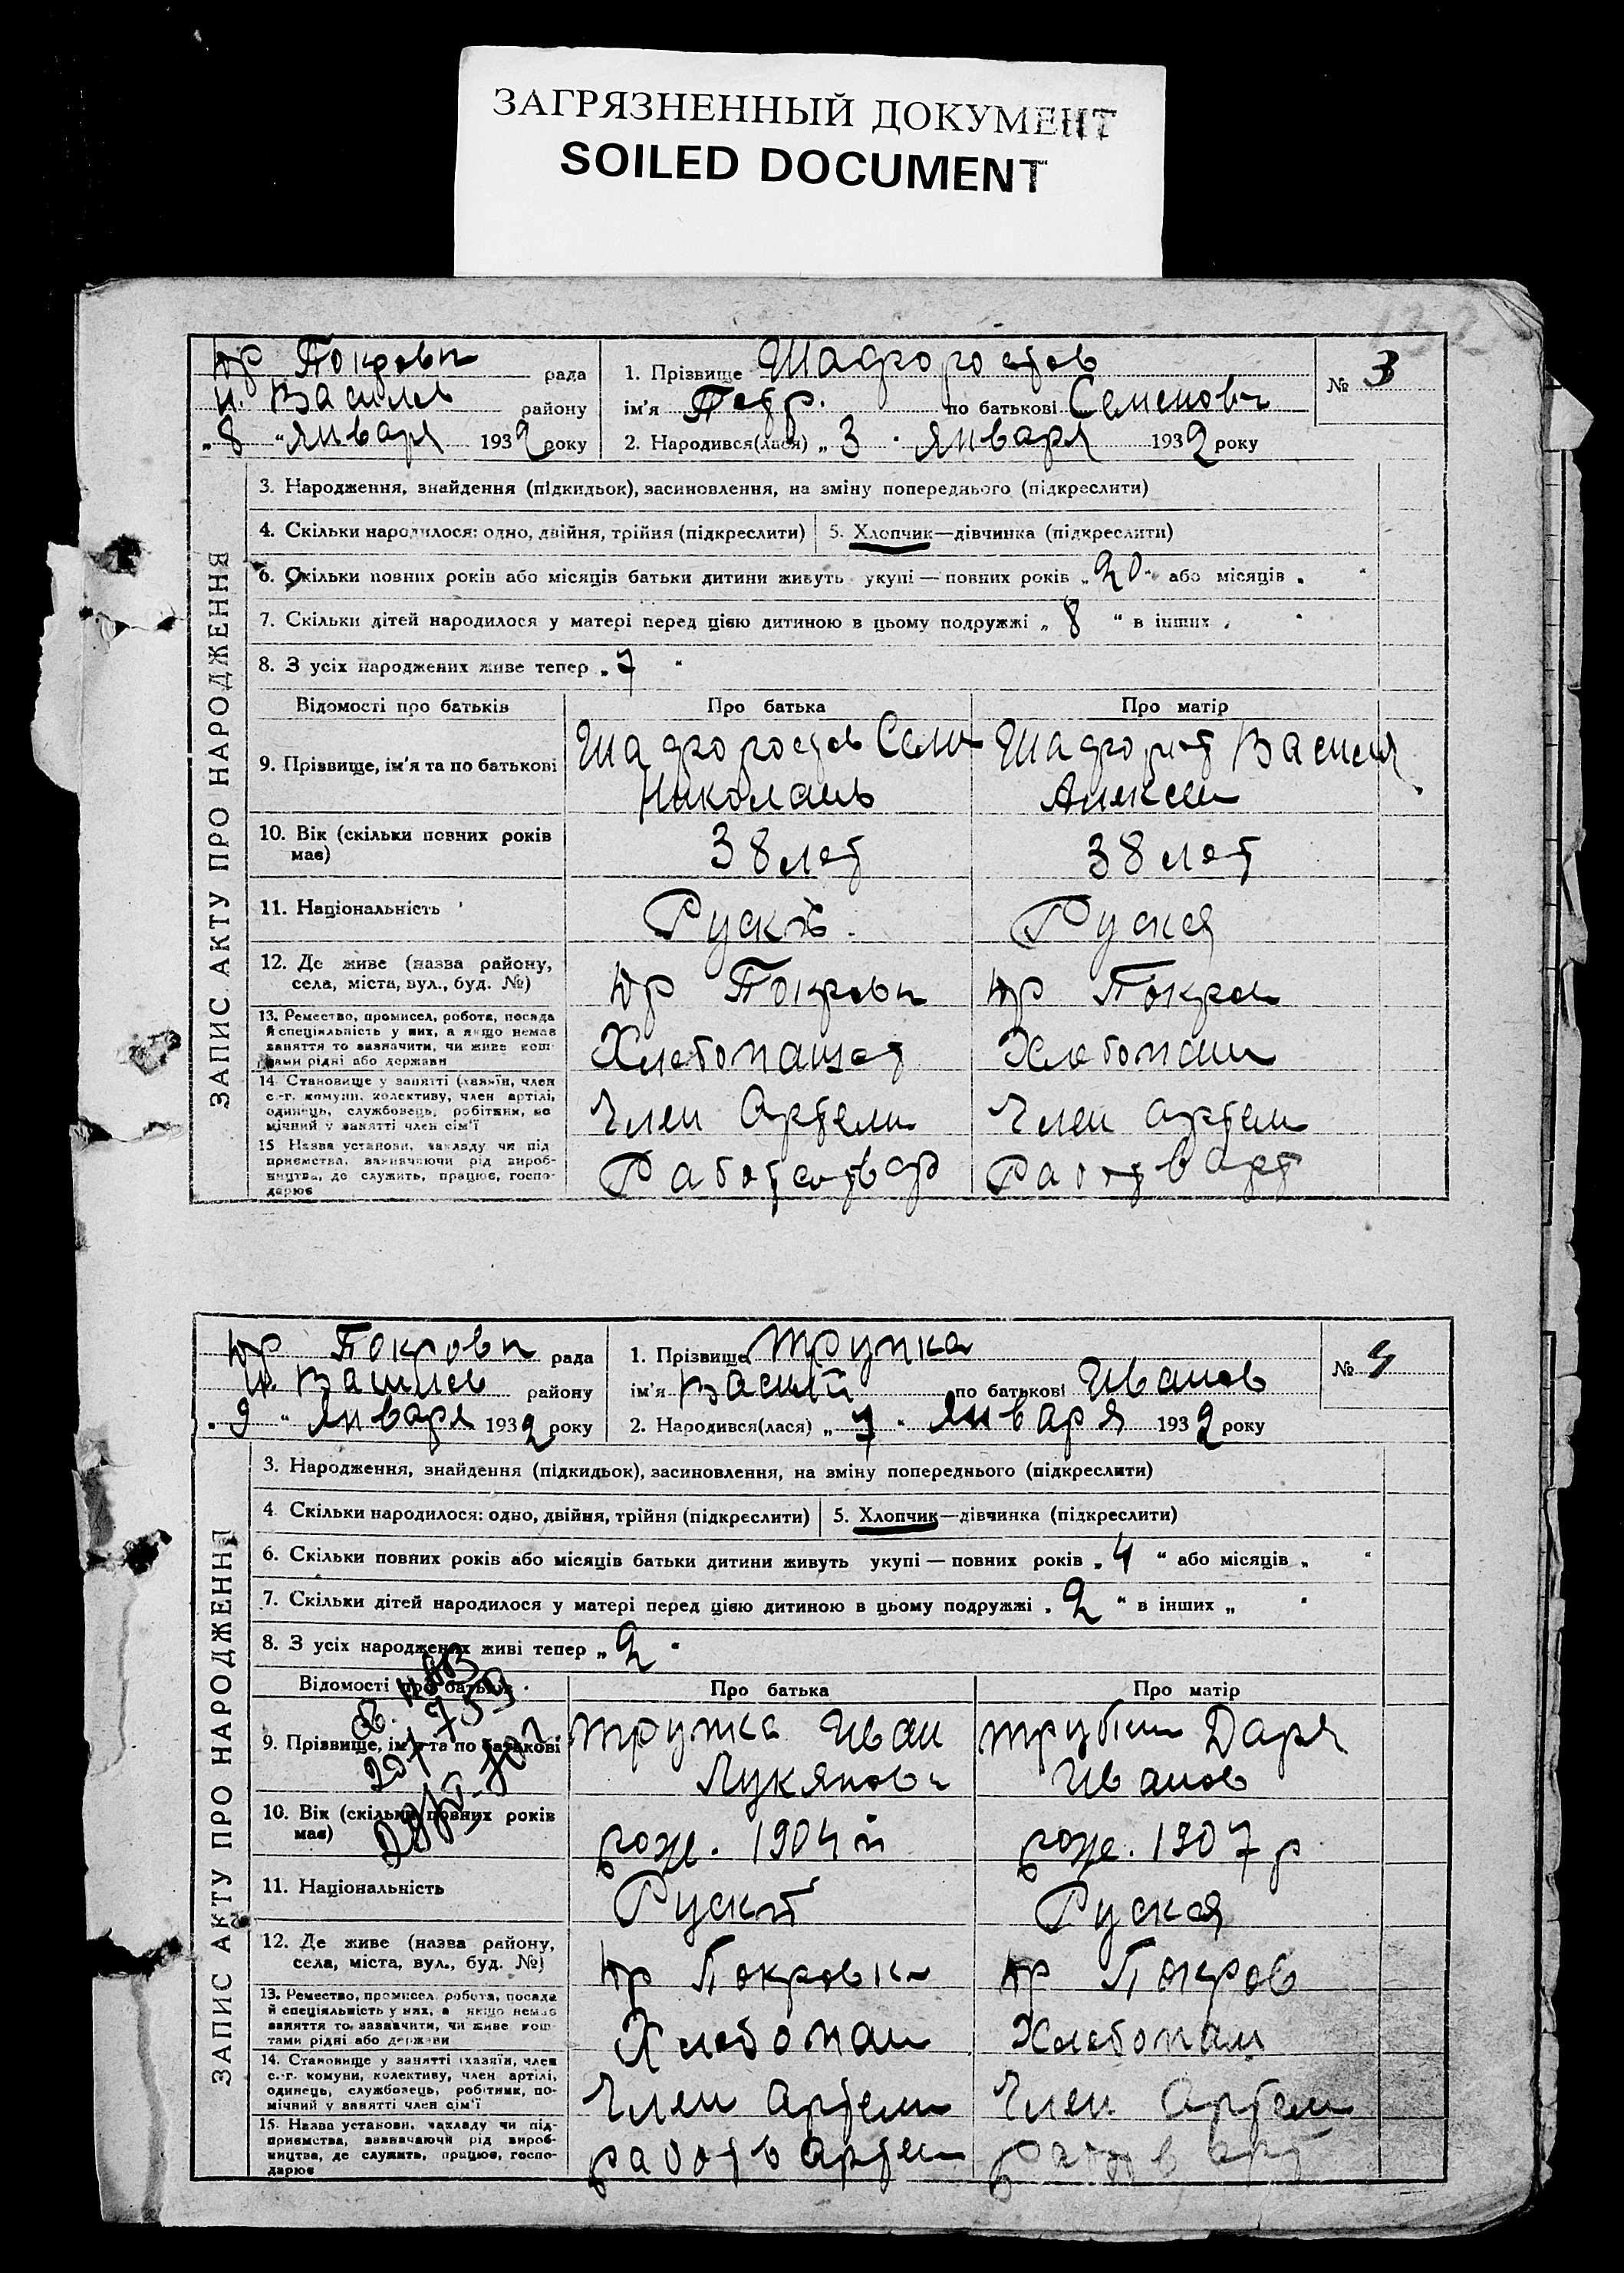 ЗАГРЯЗНЕННЫЙ ДОКУМЕНТ
SOILED DOCUMENT
Покровк рада
Н. Васильев району
„8“ Января 1932 року
1. Прізвище
ім'я Петр. по батькові Семенович
2. Народився(лася) „3“ Января 1932 року
№ 3
ЗАПИС АКТУ ПРО НАРОДЖЕННЯ
3. Народження, знайдення (підкидьок), засиновлення, на зміну попереднього (підкреслити)
4. Скільки народилося: одно, двійня, трійня (підкреслити)
5. Хлопчик—дівчинка (підкреслити)
6. Скільки повних років або місяців батьки дитини живуть укупі — повних років „20“ або місяців „ “
7. Скільки дітей народилося у матері перед цією дитиною в цьому подружжі „8“ в інших „ “
8. З усіх народжених живе тепер „7“
Відомості про батьків Про батька Про матір
9. Прізвище, ім'я та по батькові
10. Вік (скільки повних років має) 38 лет 38 лет
11. Національність Руский Руская
12. Де живе (назва району, села, міста, вул., буд. №) Покровк Покров
13. Ремество, промисел, робота, посада й спеціяльність у них, а якщо немає заняття то зазначити, чи живе коштами рідні або держави Хлебопашет Хлебопаш
14. Становище у занятті (хазяїн, член с.-г. комуни, колективу, член артілі, одинець, службовець, робітник, помічний у занятті член сім'ї Член Артели Член артели
15. Назва установи, закладу чи підприємства, зазначаючи рід виробництва, де служить, працює, господарює
Покровк рада
Н. Васильев району
„9“ Января 1932 року
1. Прізвище Трупка
ім'я Василий по батькові Иванов
2. Народився(лася) „7“ Января 1932 року
№ 4
ЗАПИС АКТУ ПРО НАРОДЖЕННЯ
3. Народження, знайдення (підкидьок), засиновлення, на зміну попереднього (підкреслити)
4. Скільки народилося: одно, двійня, трійня (підкреслити)
5. Хлопчик—дівчинка (підкреслити)
6. Скільки повних років або місяців батьки дитини живуть укупі — повних років „4“ або місяців „ “
7. Скільки дітей народилося у матері перед цією дитиною в цьому подружжі „2“ в інших „ “
8. З усіх народжених живі тепер „2“
Відомості про батьків Про батька Про матір
9. Прізвище, ім'я та по батькові Трупка Иван Даря
Лукянови Иванов
10. Вік (скільки повних років має) рож. 1904 рож. 1907 р
11. Національність Руский Руская
12. Де живе (назва району, села, міста, вул., буд. №) Покровки Покров
13. Ремество, промисел, робота, посада й спеціяльність у них, а якщо немає заняття то зазначити, чи живе коштами рідні або держави Хлебопаш Хлебопаш
14. Становище у занятті (хазяїн, член с.-г. комуни, колективу, член артілі, одинець, службовець, робітник, помічний у занятті член сім'ї Член артели Член Артели
15. Назва установи, закладу чи підприємства, зазначаючи рід виробництва, де служить, працює, господарює работ в артел